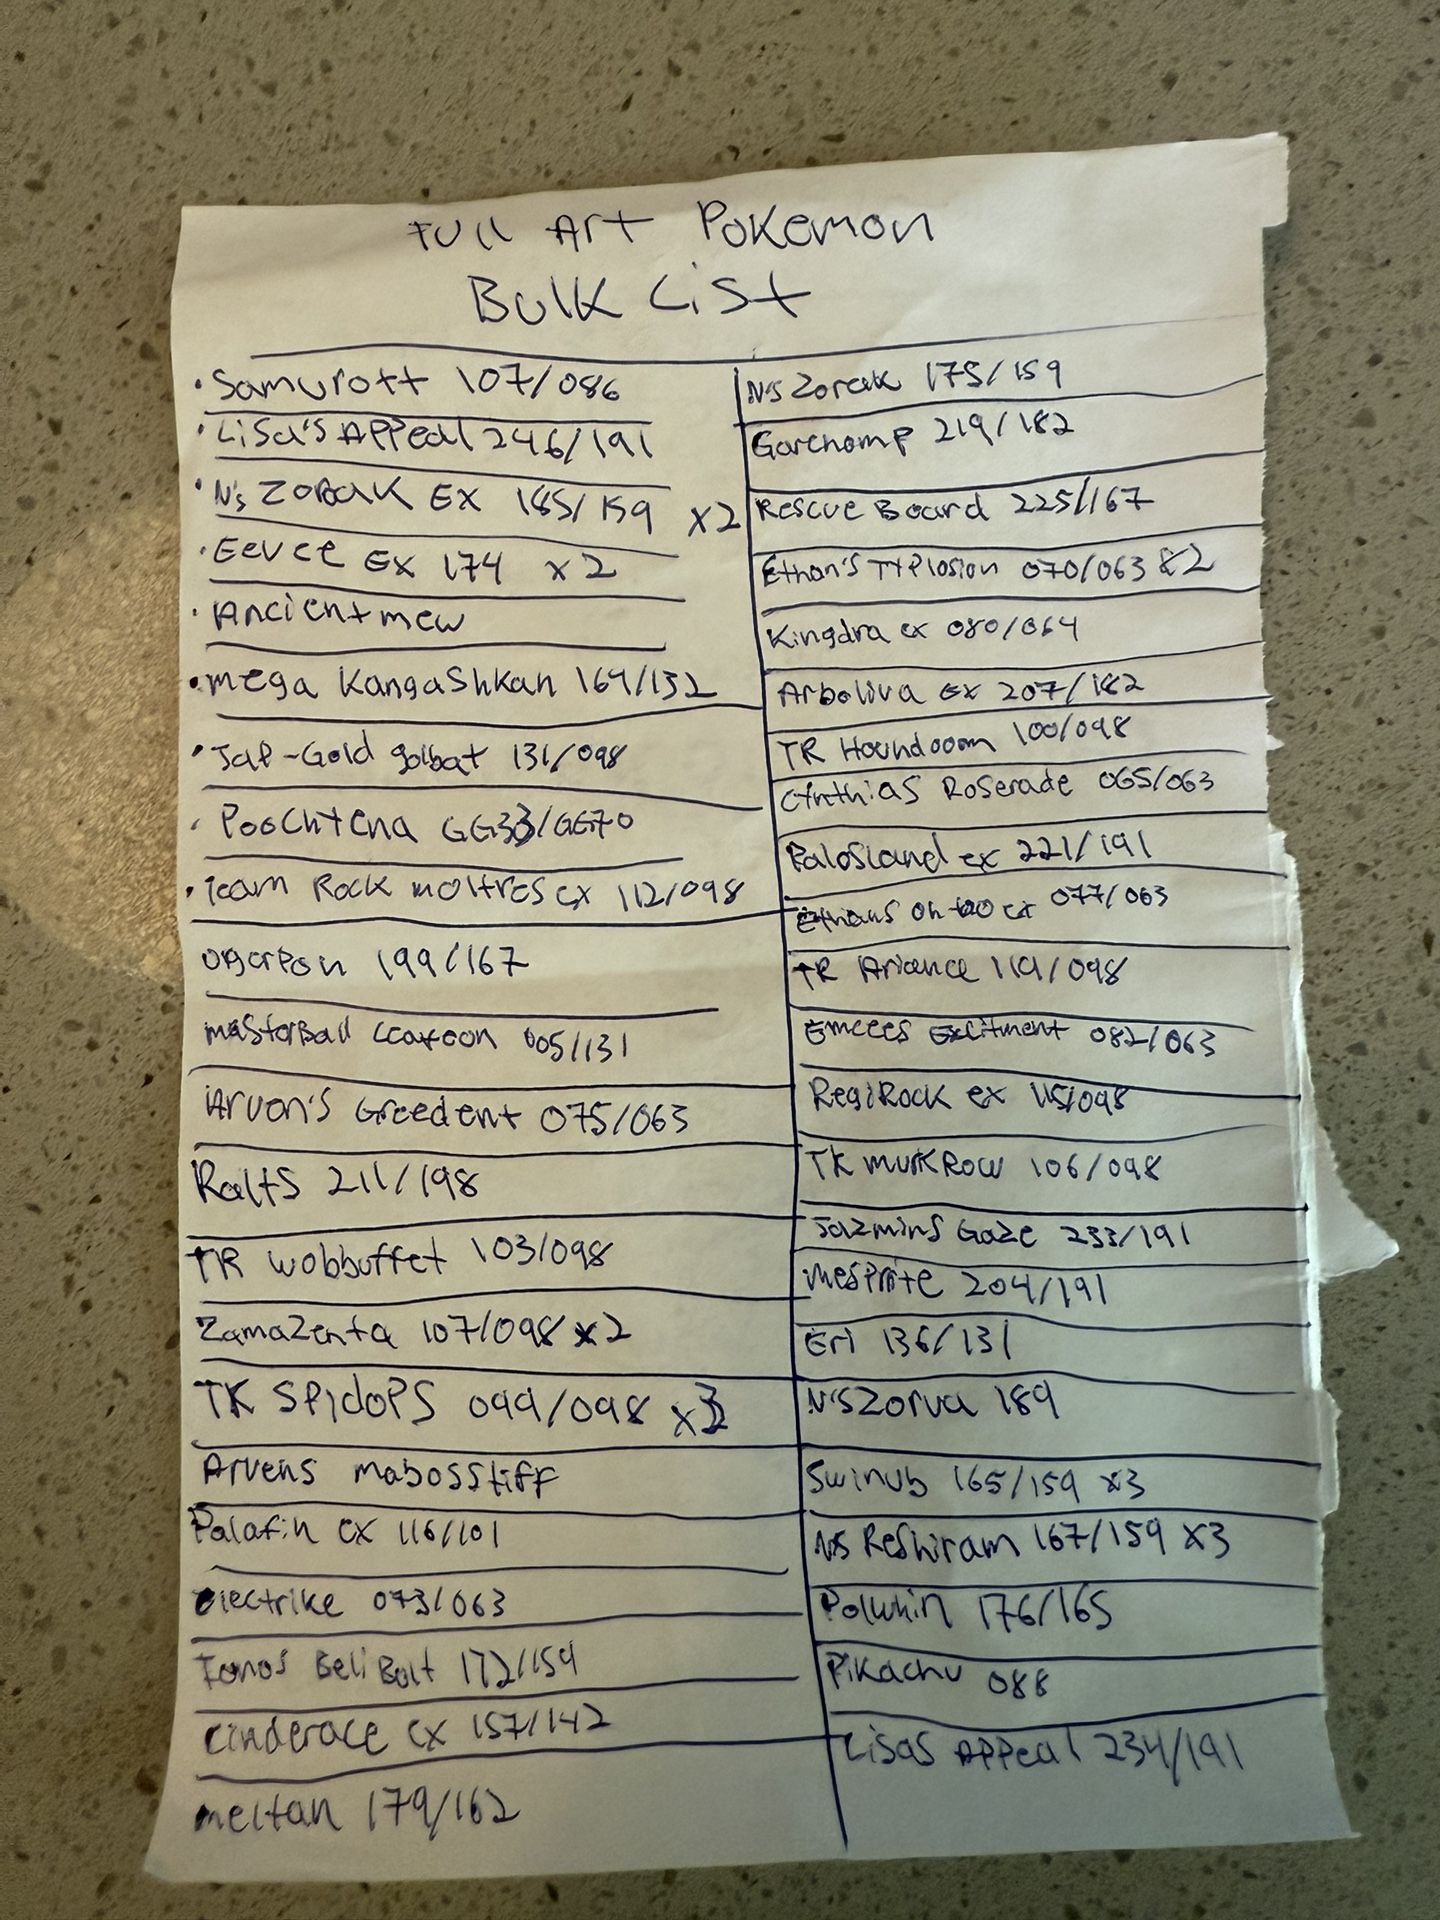 Full Art Pokemon
Bulk List
• Samurott 107/086
• Lisa's Appeal 246/191
• N's Zoroak EX 185/159 x2
• Eevee Ex 174 x2
• Ancient mew
• Mega Kangashkan 164/132
• Jap-Gold golbat 131/098
• Poochtena GG33/GG70
• Team Rock moltres ex 112/098
Ogerpon 199/167
masterball 005/131
Arven's Greedent 075/063
Ralts 211/198
TR wobbuffet 103/098
Zamazenta 107/098 x2
TK SPidoPS 099/098
Arvens mabosstiff
Palafin ex 116/101
electrike 073/063
Ionos BeliBolt 172/159
Cinderace ex 157/142
meltan 179/162
N's Zoroak 175/159
Garchomp 219/182
Rescue Board 225/167
Ethan's TYPlosion 070/063 x2
Kingdra ex 080/064
Arboliva ex 207/182
TR Houndooom 100/098
Cynthias Roserade 065/063
Palosland ex 221/191
Ethans ex 077/063
TR Ariance 119/098
Emcees Excitment 082/063
RegiRock ex 115/098
TK murkRow 106/098
Jazmins Gaze 233/191
mesprite 204/191
Eri 136/131
N'S Zorua 189
Swinub 165/159 x3
NS Reshiram 167/159 x3
Polwhin 176/165
Pikachu 088
Lisas Appeal 234/191